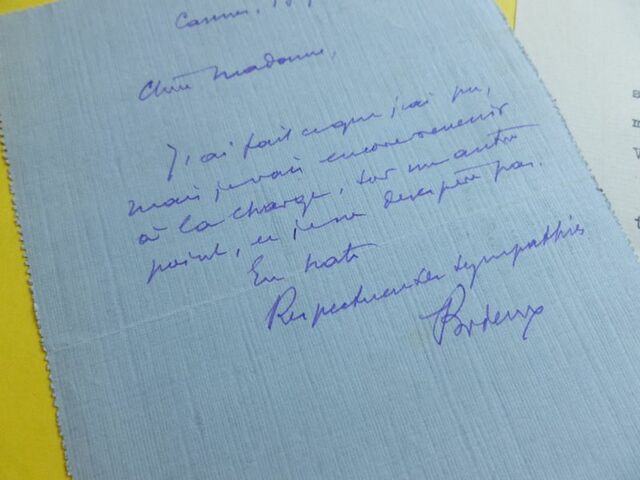 Chère Madame,
J'ai fait ce que j'ai pu,
mais je vais encore revenir
à la charge, sur un autre
point, et je ne désespère pas.
En hâte
Respectueuses sympathies